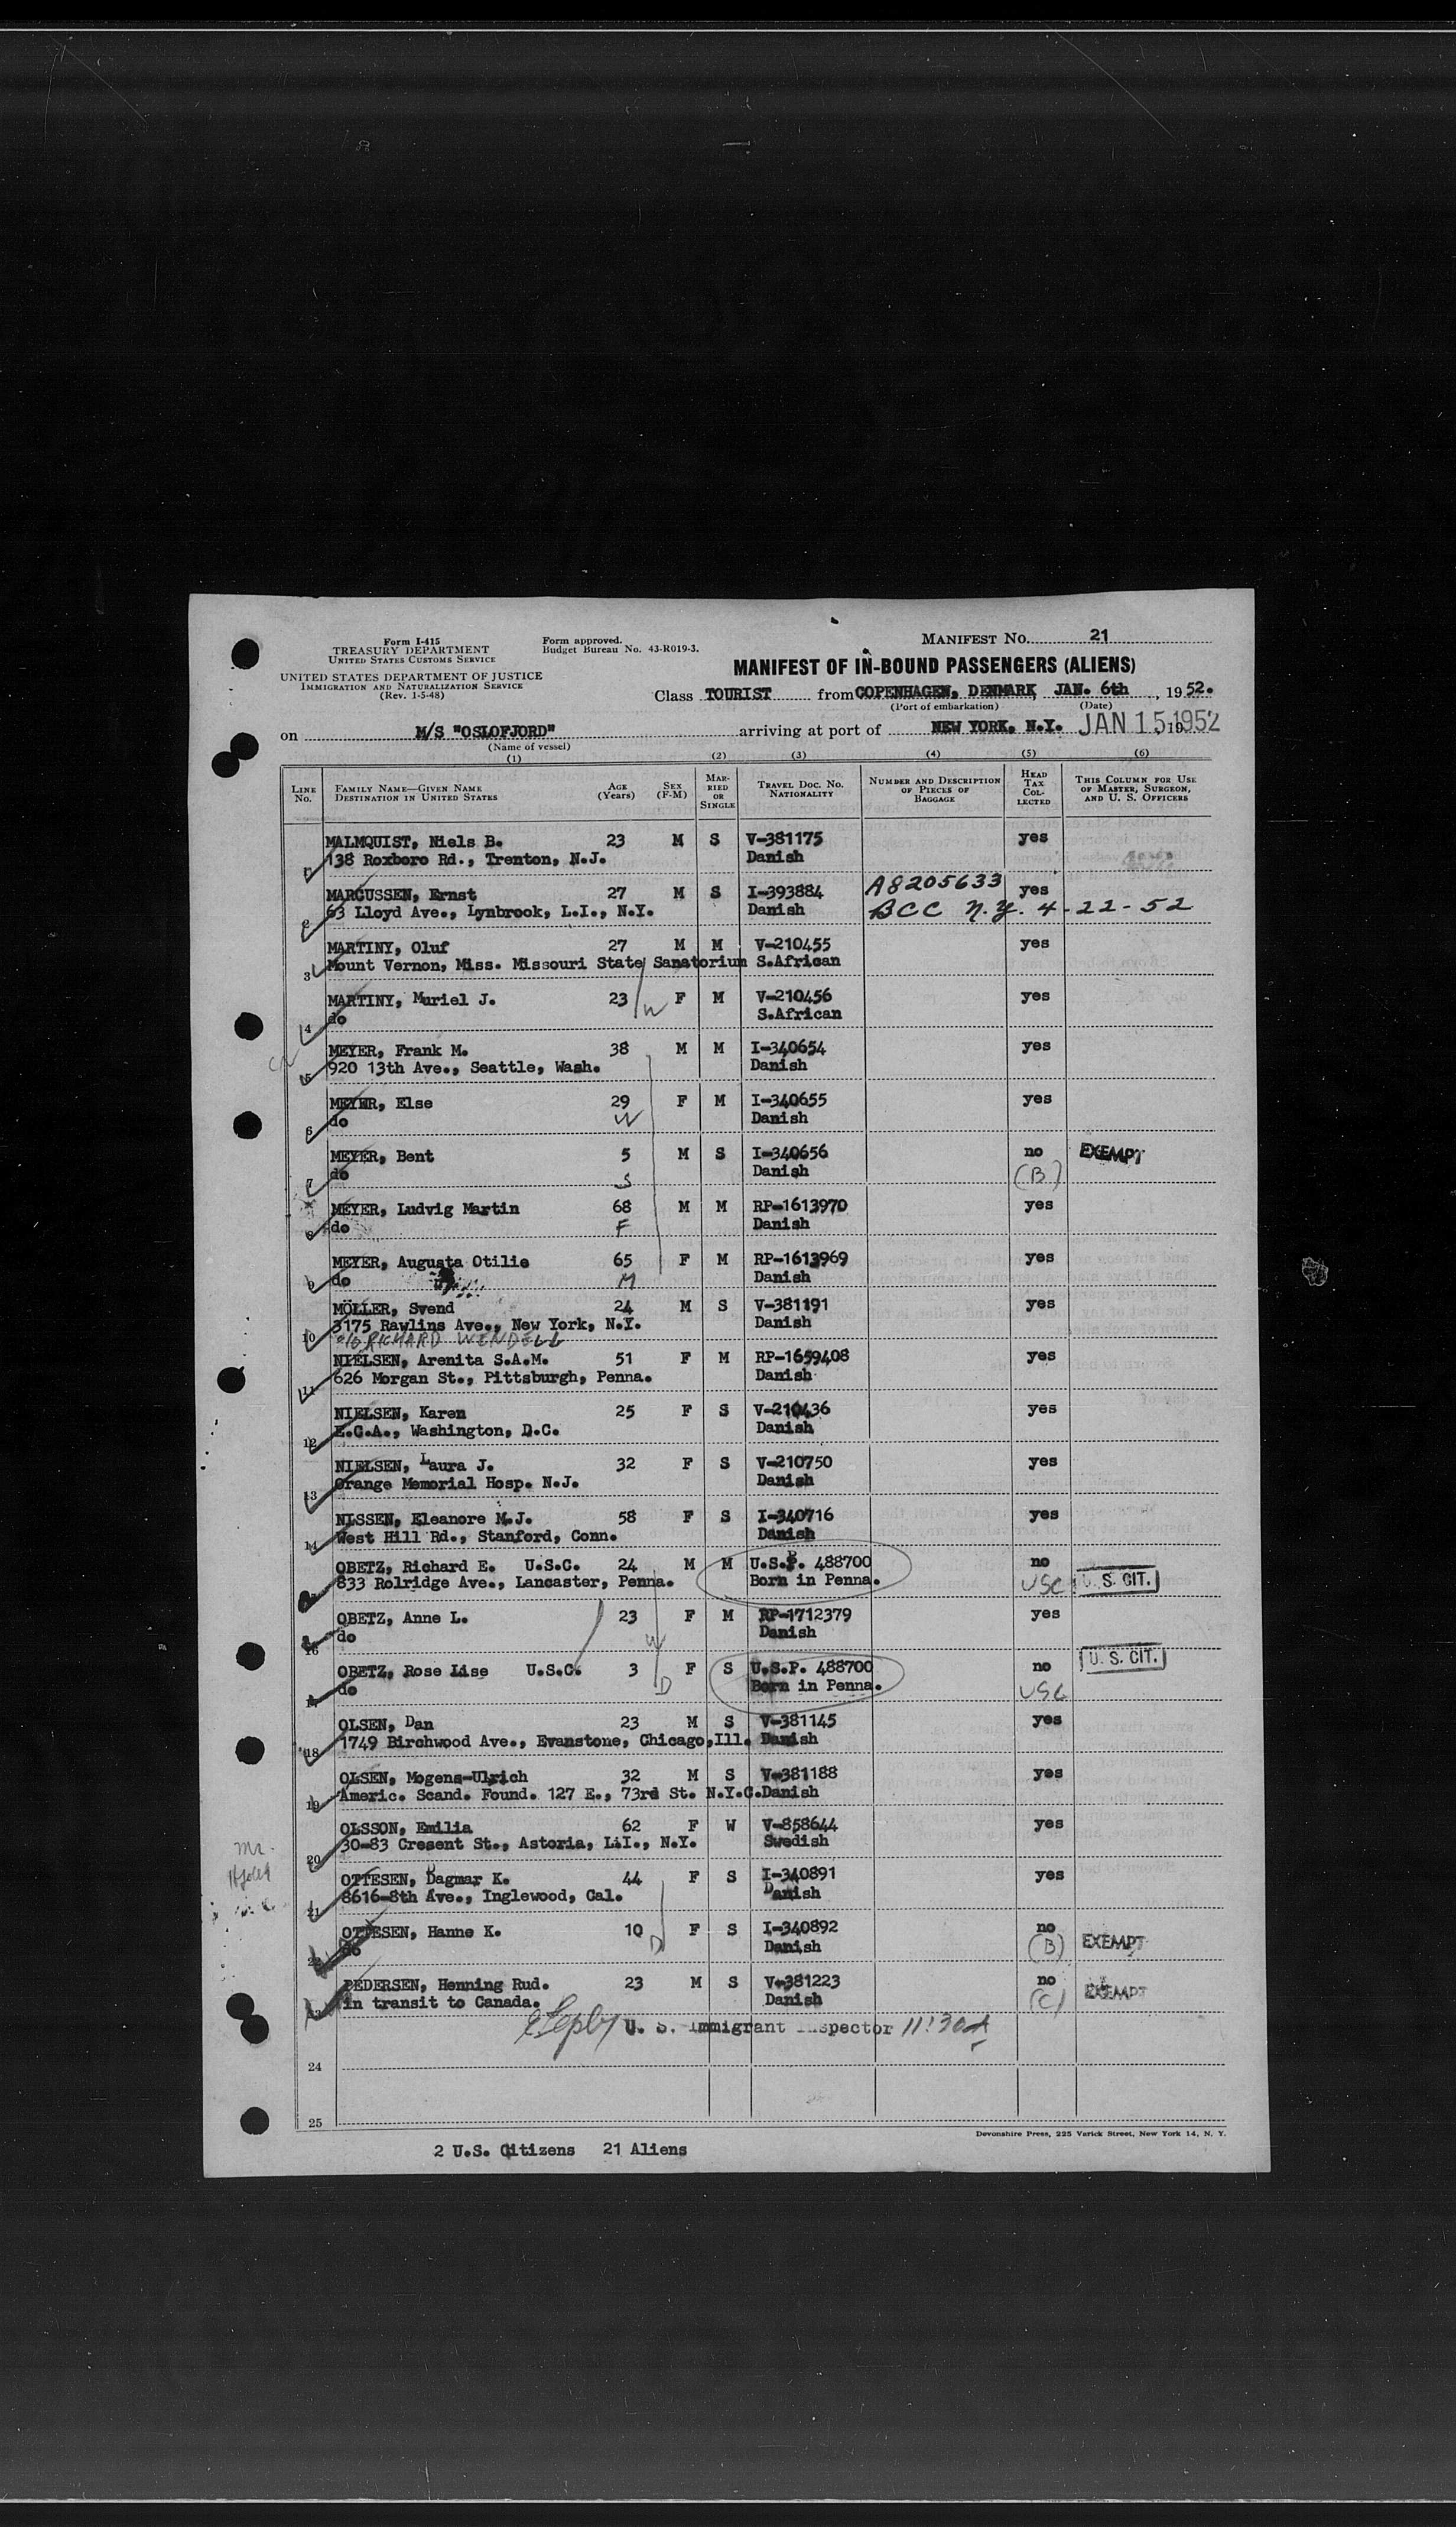 Form I-415
TREASURY DEPARTMENT
UNITED STATES CUSTOMS SERVICE
UNITED STATES DEPARTMENT OF JUSTICE
IMMIGRATION AND NATURALIZATION SERVICE
(Rev. 1-5-48)
Form approved.
Budget Bureau No. 43-R019-3.
MANIFEST NO. 21
MANIFEST OF IN-BOUND PASSENGERS (ALIENS)
Class TOURIST from COPENHAGEN, DENMARK, JAN. 6th, 1952.
(Port of embarkation) (Date)
on M/S "OSLOFJORD" arriving at port of NEW YORK, N.Y. JAN 15 1952 19
(Name of vessel)
(1) (2) (3) (4) (5) (6)
LINE NO. FAMILY NAME—GIVEN NAME DESTINATION IN UNITED STATES AGE (Years) SEX (F-M) MARRIED OR SINGLE TRAVEL DOC. NO. NATIONALITY NUMBER AND DESCRIPTION OF PIECES OF BAGGAGE HEAD TAX COLLECTED THIS COLUMN FOR USE OF MASTER, SURGEON, AND U. S. OFFICERS
MALMQUIST, Niels B. 23 M S V-381175 yes
1 138 Roxboro Rd., Trenton, N.J. Danish
MARCUSSEN, Ernst 27 M S I-393884 A8205633 yes
2 63 Lloyd Ave., Lynbrook, L.I., N.Y. Danish BCC N.Y. 4-22-52
MARTINY, Oluf 27 M M V-210455 yes
3 Mount Vernon, Miss. Missouri State Sanatorium S.African
MARTINY, Muriel J. 23 W F M V-210456 yes
4 do S.African
MEYER, Frank M. 38 M M I-340654 yes
5 920 13th Ave., Seattle, Wash. Danish
MEYER, Else 29 F M I-340655 yes
6 do W Danish
MEYER, Bent 5 M S I-340656 no EXEMPT
7 do S Danish (B)
MEYER, Ludvig Martin 68 M M RP-1613970 yes
8 do F Danish
MEYER, Augusta Otilie 65 F M RP-1613969 yes
9 do M Danish
MÖLLER, Svend 24 M S V-381191 yes
10 3175 Rawlins Ave., New York, N.Y. Danish
c/o RICHARD WENDELL
NIELSEN, Arenita S.A.M. 51 F M RP-1659408 yes
11 626 Morgan St., Pittsburgh, Penna. Danish
NIELSEN, Karen 25 F S V-210436 yes
12 E.C.A., Washington, D.C. Danish
NIELSEN, Laura J. 32 F S V-210750 yes
13 Orange Memorial Hosp. N.J. Danish
NISSEN, Eleanore M.J. 58 F S I-340716 yes
14 West Hill Rd., Stanford, Conn. Danish
OBETZ, Richard E. U.S.C. 24 M M U.S.P. 488700 no
833 Rolridge Ave., Lancaster, Penna. Born in Penna. USC U. S. CIT.
OBETZ, Anne L. 23 F M RP-1712379 yes
16 do W Danish
OBETZ, Rose Lise U.S.C. 3 F S U.S.P. 488700 no U. S. CIT.
17 do D Born in Penna. USC
OLSEN, Dan 23 M S V-381145 yes
18 1749 Birchwood Ave., Evanstone, Chicago,Ill. Danish
OLSEN, Mogens-Ulrich 32 M S V-381188 yes
19 Americ. Scand. Found. 127 E., 73rd St. N.Y.C. Danish
OLSSON, Emilia 62 F W V-858644 yes
20 30-83 Cresent St., Astoria, L.I., N.Y. Swedish
Mr.
OTTESEN, Dagmar K. 44 F S I-340891 yes
21 8616-8th Ave., Inglewood, Cal. Danish
OTTESEN, Hanne K. 10 F S I-340892 no
22 do D Danish (B) EXEMPT
PEDERSEN, Henning Rud. 23 M S V-381223 no
23 in transit to Canada. Danish (C) EXEMPT
U. S. Immigrant Inspector 11:30A
24
25
Devonshire Press, 225 Varick Street, New York 14, N. Y.
2 U.S. Citizens 21 Aliens